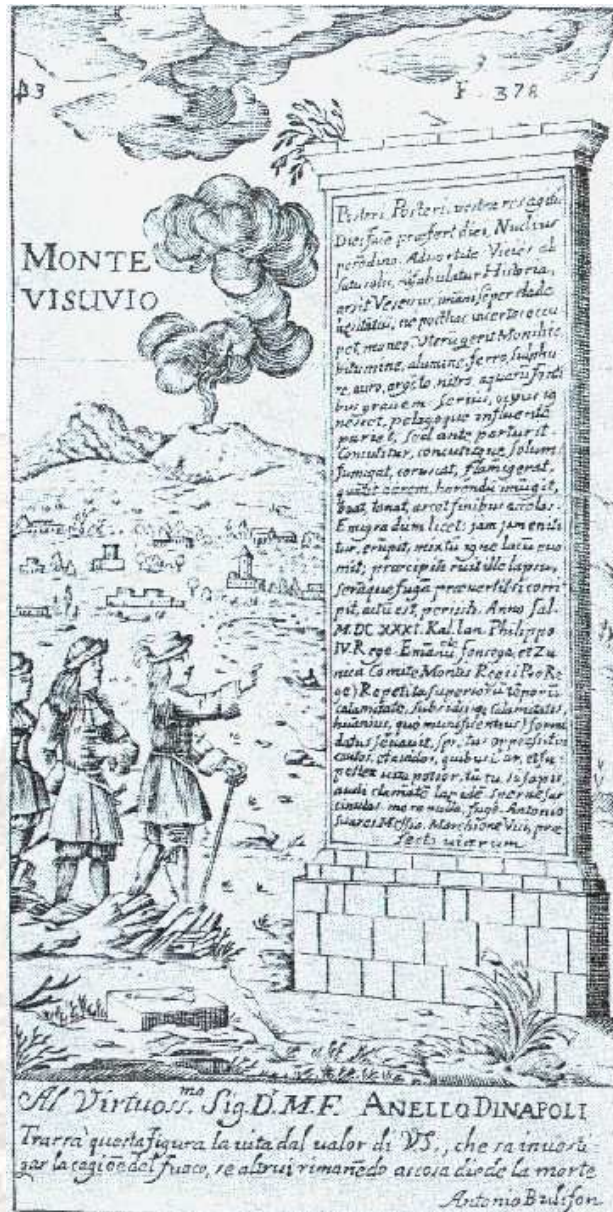 43
F. 378
MONTE
VISUVIO
Posteri, Posteri, vestra res agitur
Dies facē præfert diei, Nudius
perēdino. Advortite Vicies ab
satu solis, ni fabulatur Historia,
arsit Vesevus, imani sēper clade
hęsitatiū, ne posthac incertos occu
pet, moneo. Uterū gerit Mons hic
bitumine, alumine, ferro, sulphu
re, auro, argēto, nitro, aquarū fonti
bus gravem. Serius, ocyus ig
nescet, pelagoque influente
pariet, sed ante parturit.
Concutitur, concutitque solum
fumigat, coruscat, flāmigerat,
quatit aerem, horendū imūgit,
boat, tonat, arcet finibus accolas.
Emigra dum licet; jam jam eniti
tur, erūpit, mixtū igne lacū euo
mit; præcipiti ruit ille lapsu,
serāque fugā prævertit. si corri
pit, actū est, periisti. Anno sal.
M.DC XXXI. Kal. Ian. Philippo
IV. Rege. Emanuele fonseca, et Zu
nica Comite Montis Regii Pro Re
ge) Repetita superiorū tēporū
calamitate, subsidiisq; calamitatis,
humanius, quo munificentius) formi
datus servavit, spretus oppressit in
cautos, et avidos, quibus lar, et su
pellex vita potior, tu tū, si sapis,
audi clamātē lapidē Sperne sar
cinulas. mora nulla, fuge. Antonio
Suares Messia. Marchione Vici, præ
fecto viarum
Al Virtuoss.mo Sig. D. M. F. ANELLO DINAPOLI
Trarrà questa figura la vita dal valor di V.S., che sa investi
gar la cagiōe del fuoco, se altrui rimanēdo ascosa diede la morte
Antonio Bulifon